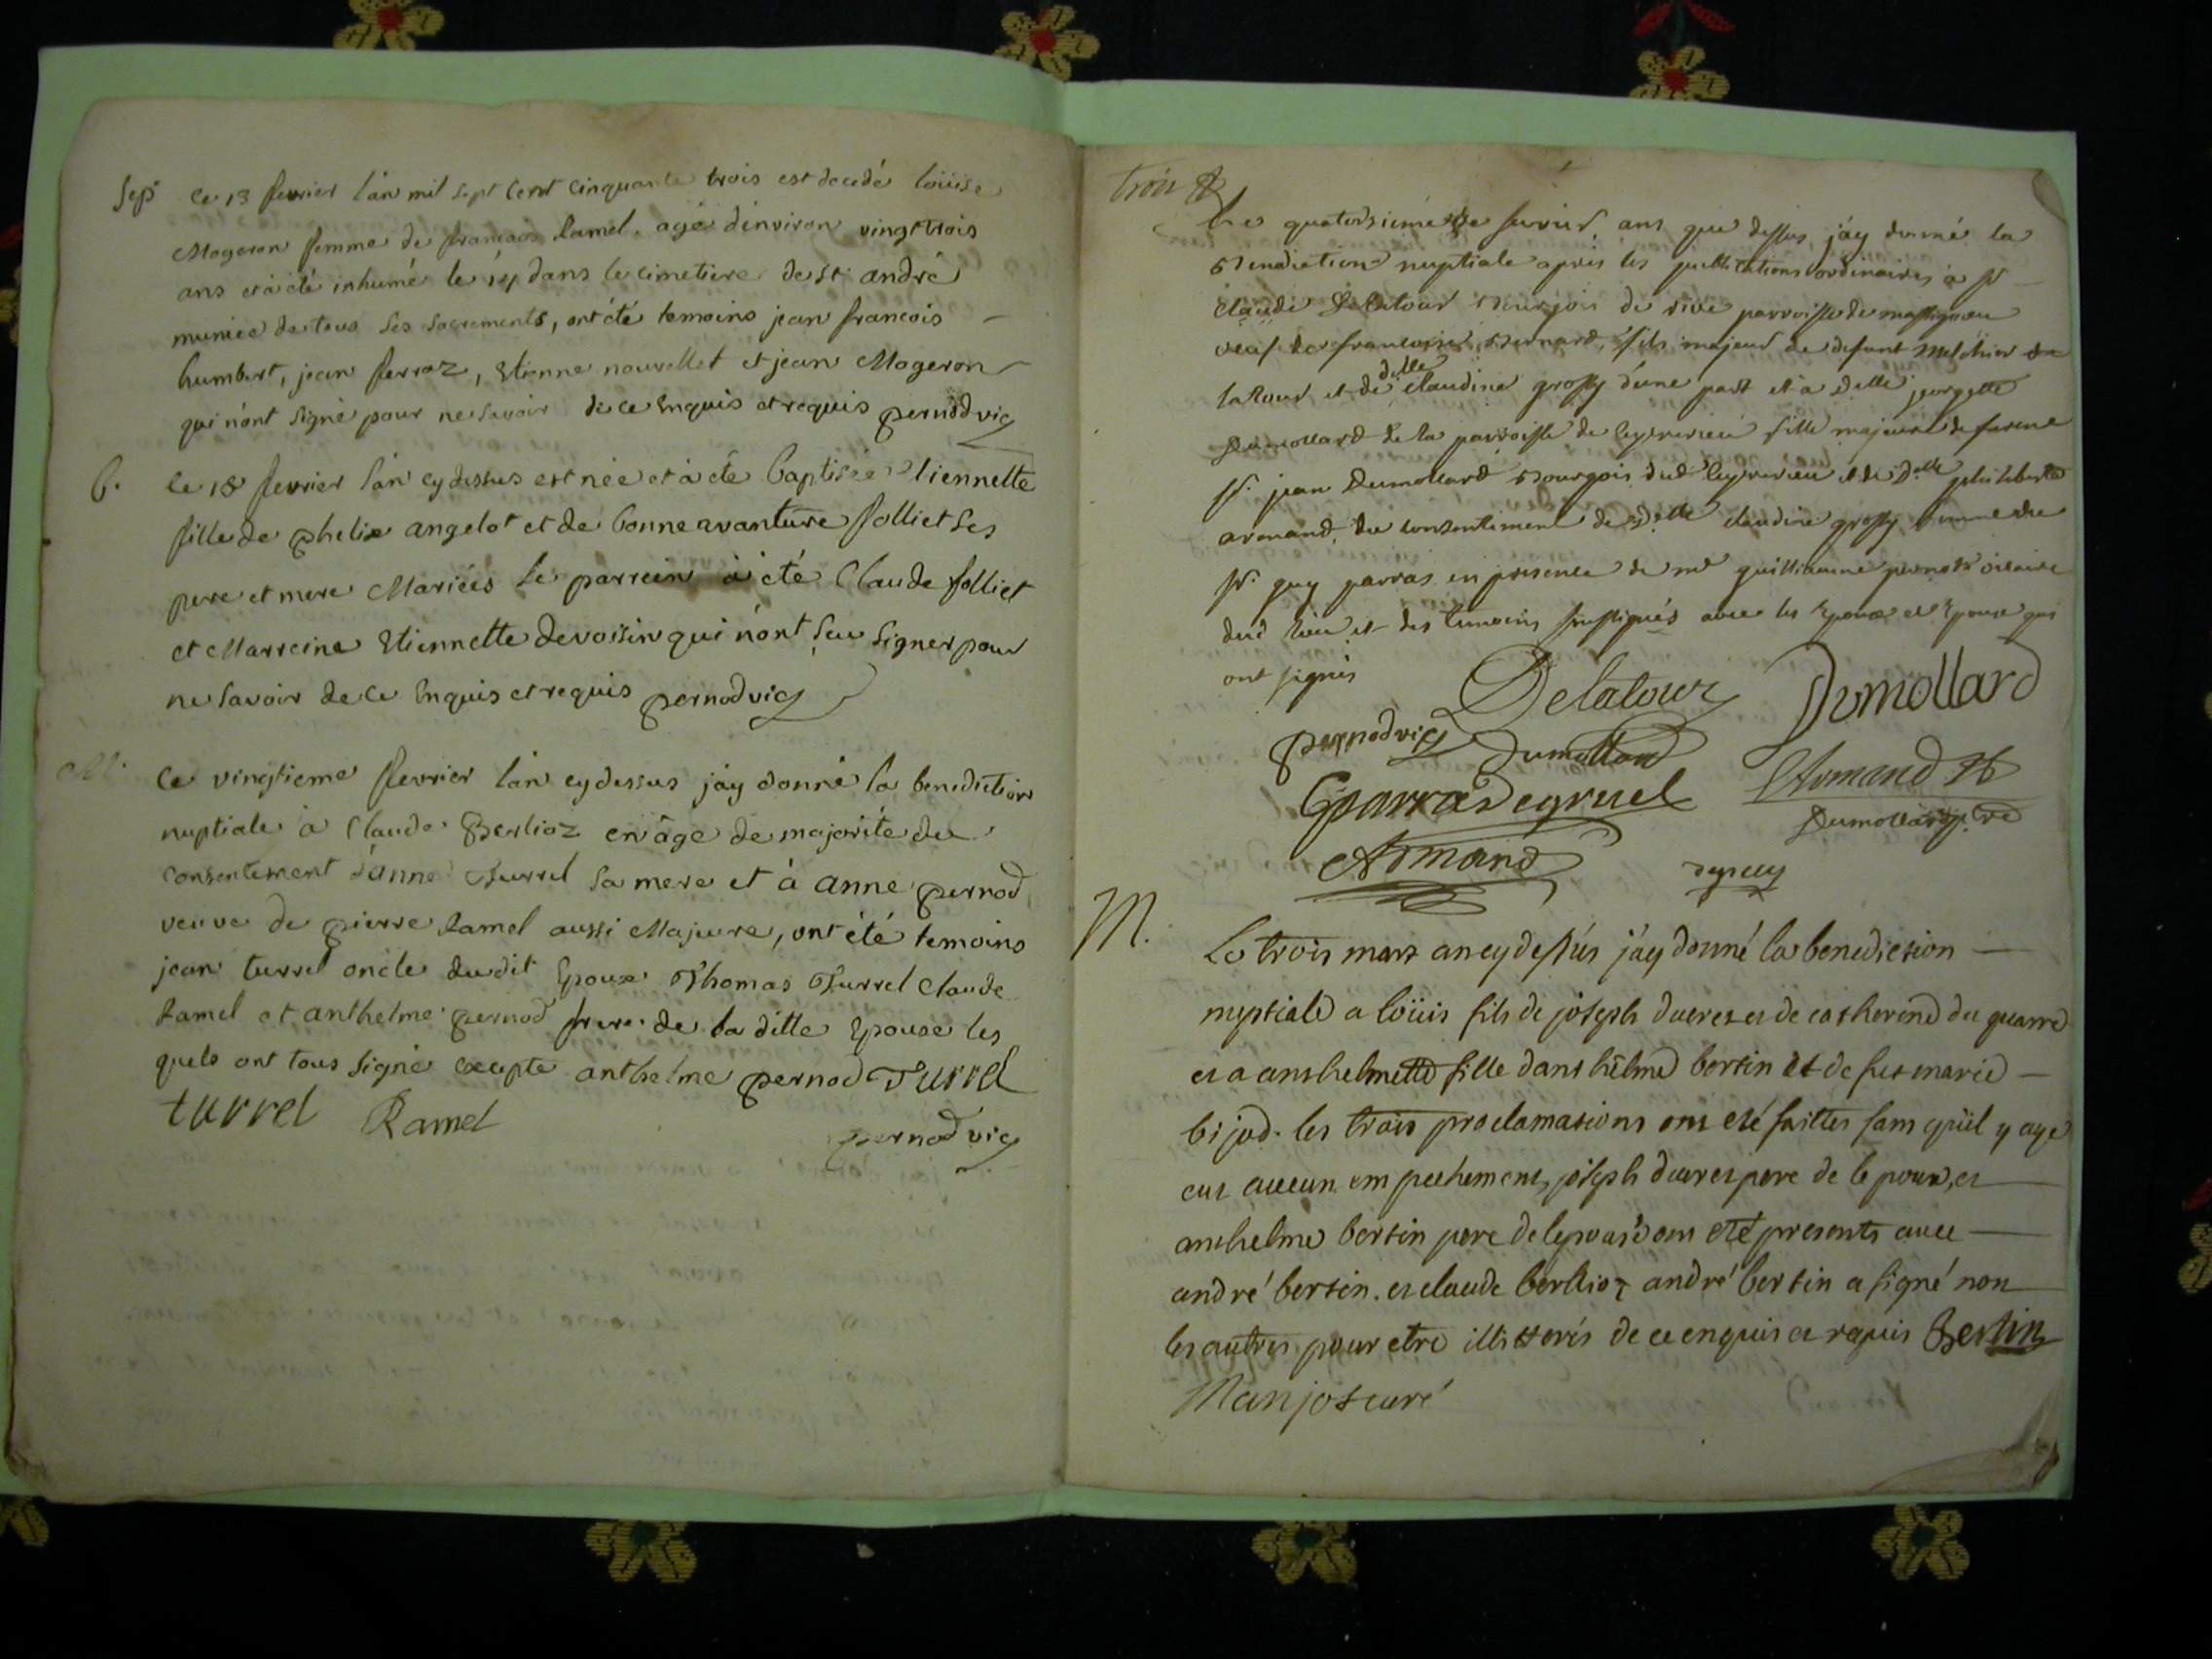 Sep
ce 13 fevrier l'an mil sept cent cinquante trois est decedé loüise
Mogeron femme de francois Ramel. agé d'environ vingt trois
ans et à été inhumé le 14 dans le cimetiere de st andré
muniée de tous ses sacrements, ont été temoins jean francois
humbert, jean ferraz, Etienne nouvellet et jean Mogeron
qui n'ont signé pour ne savoir de ce Enquis et requis pernod vic
b.
le 18 fevrier l'an cy dessus est née et à été baptisée Etiennette
fille de phelix angelot et de bonne avanture folliet ses
pere et mere Mariées le parrein à été Claude folliet
et Marreine Etiennette devoisin qui n'ont seu signer pour
ne savoir de ce Enquis et requis pernod vic
M.
ce vingtieme fevrier l'an cy dessus j'ay donné la benediction
nuptiale à Claude Berlioz en âge de majorité du
consentement d'anne Turrel sa mere et à anne pernod
veuve de pierre Ramel aussi Majeure, ont été temoins
jean turrel oncle dudit Epoux Thomas Turrel Claude
Ramel et anthelme pernod frere de la ditte Epouse les
quels ont tous signé excepte anthelme pernod Turrel
turrel Ramel
pernod vic
trois
Le quatorsieme de fevrier, ans que dessus j'ay donné la
Benediction nuptiale apres les publications ordinaires a sr
Claude Delatour Bourjois de rive parroisse de
veuf de francoise Bernard, fils majeur de defunt Melchior de
latour et de delle Claudine grossy d'une part et a Delle jeorgette
Dumollard de la parroisse de fille majeure de
sr. jean Dumollard Bourgois dud et de Delle philiberte
armand, du consentiment de Delle Claudine grossy
sr. guy parras en presence de mr guilliaume pernod vicaire
dud lieu et des temoins soussignés avec les Epoux et Epouse qui
ont signés
Delatour Dumollard
pernod vic Dumollard
Gparra Degruel Armand
Dumollard
Armand
M.
Le trois mars an cy dessus j'ay donné la benediction
nuptiale a loüis fils de joseph ducret et de catherine du quarre
et a anthelmette fille danthelme bertin et de fut marie
bijod. les trois proclamations ont eté faittes sans qu'il y aye
eut aucun empechement, joseph ducret pere de lepoux, et
anthelme bertin pere de lepouse ont eté presents avec
andré bertin. et claude berllioz andré bertin a signé non
les autres pour etre illitterés de ce enquis et requis Bertin
Manjot curé